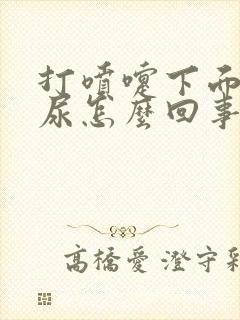 打噴嚏下面
尿怎麼回事
高橋愛 澄守彩